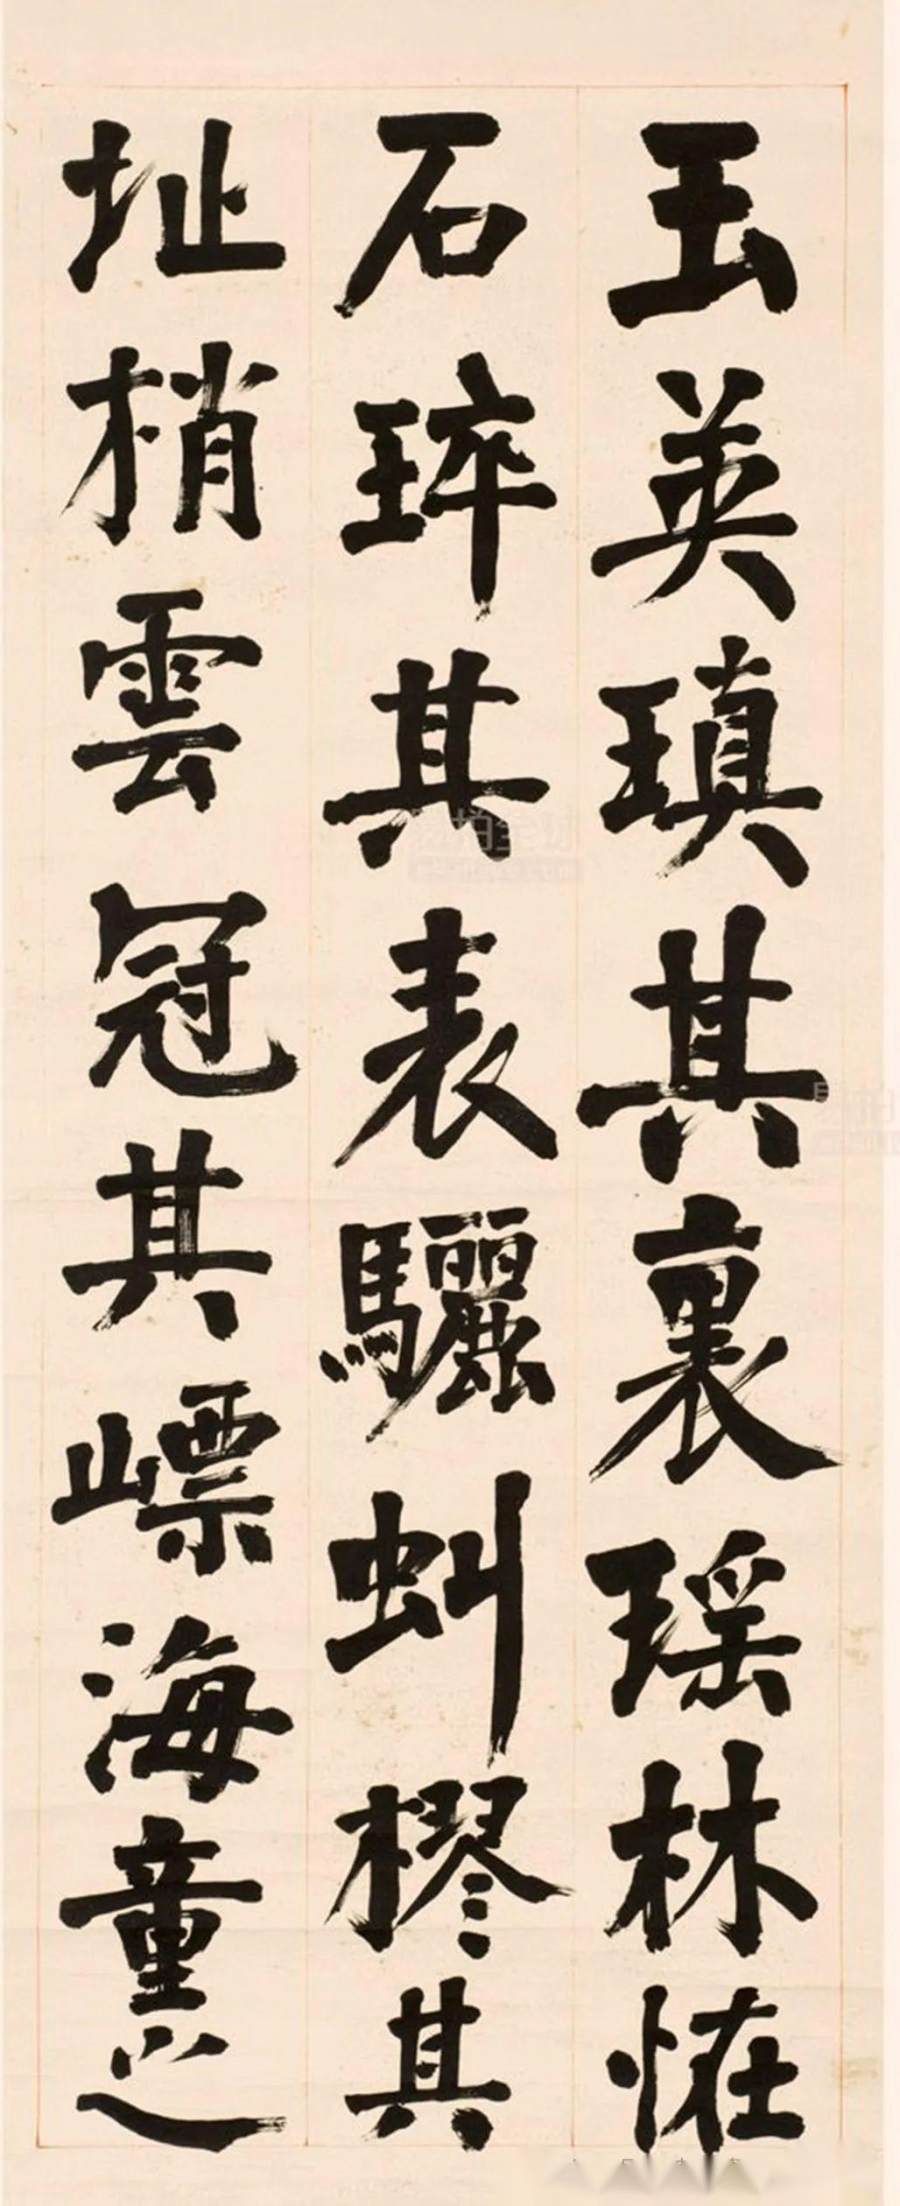 玉英瑱其裏瑶林恠
石琗其表驪虯樛其
址梢雲冠其嶛海童之